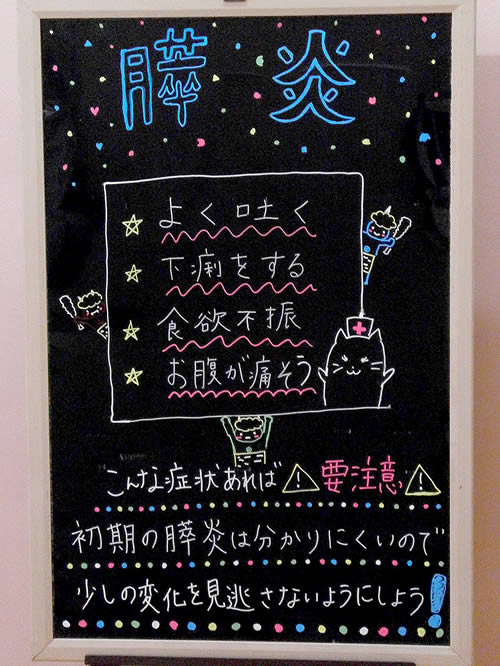 膵炎
☆ よく吐く
☆ 下痢をする
☆ 食欲不振
☆ お腹が痛そう
こんな症状あれば⚠要注意⚠
初期の膵炎は分かりにくいので
少しの変化を見逃さないようにしよう!